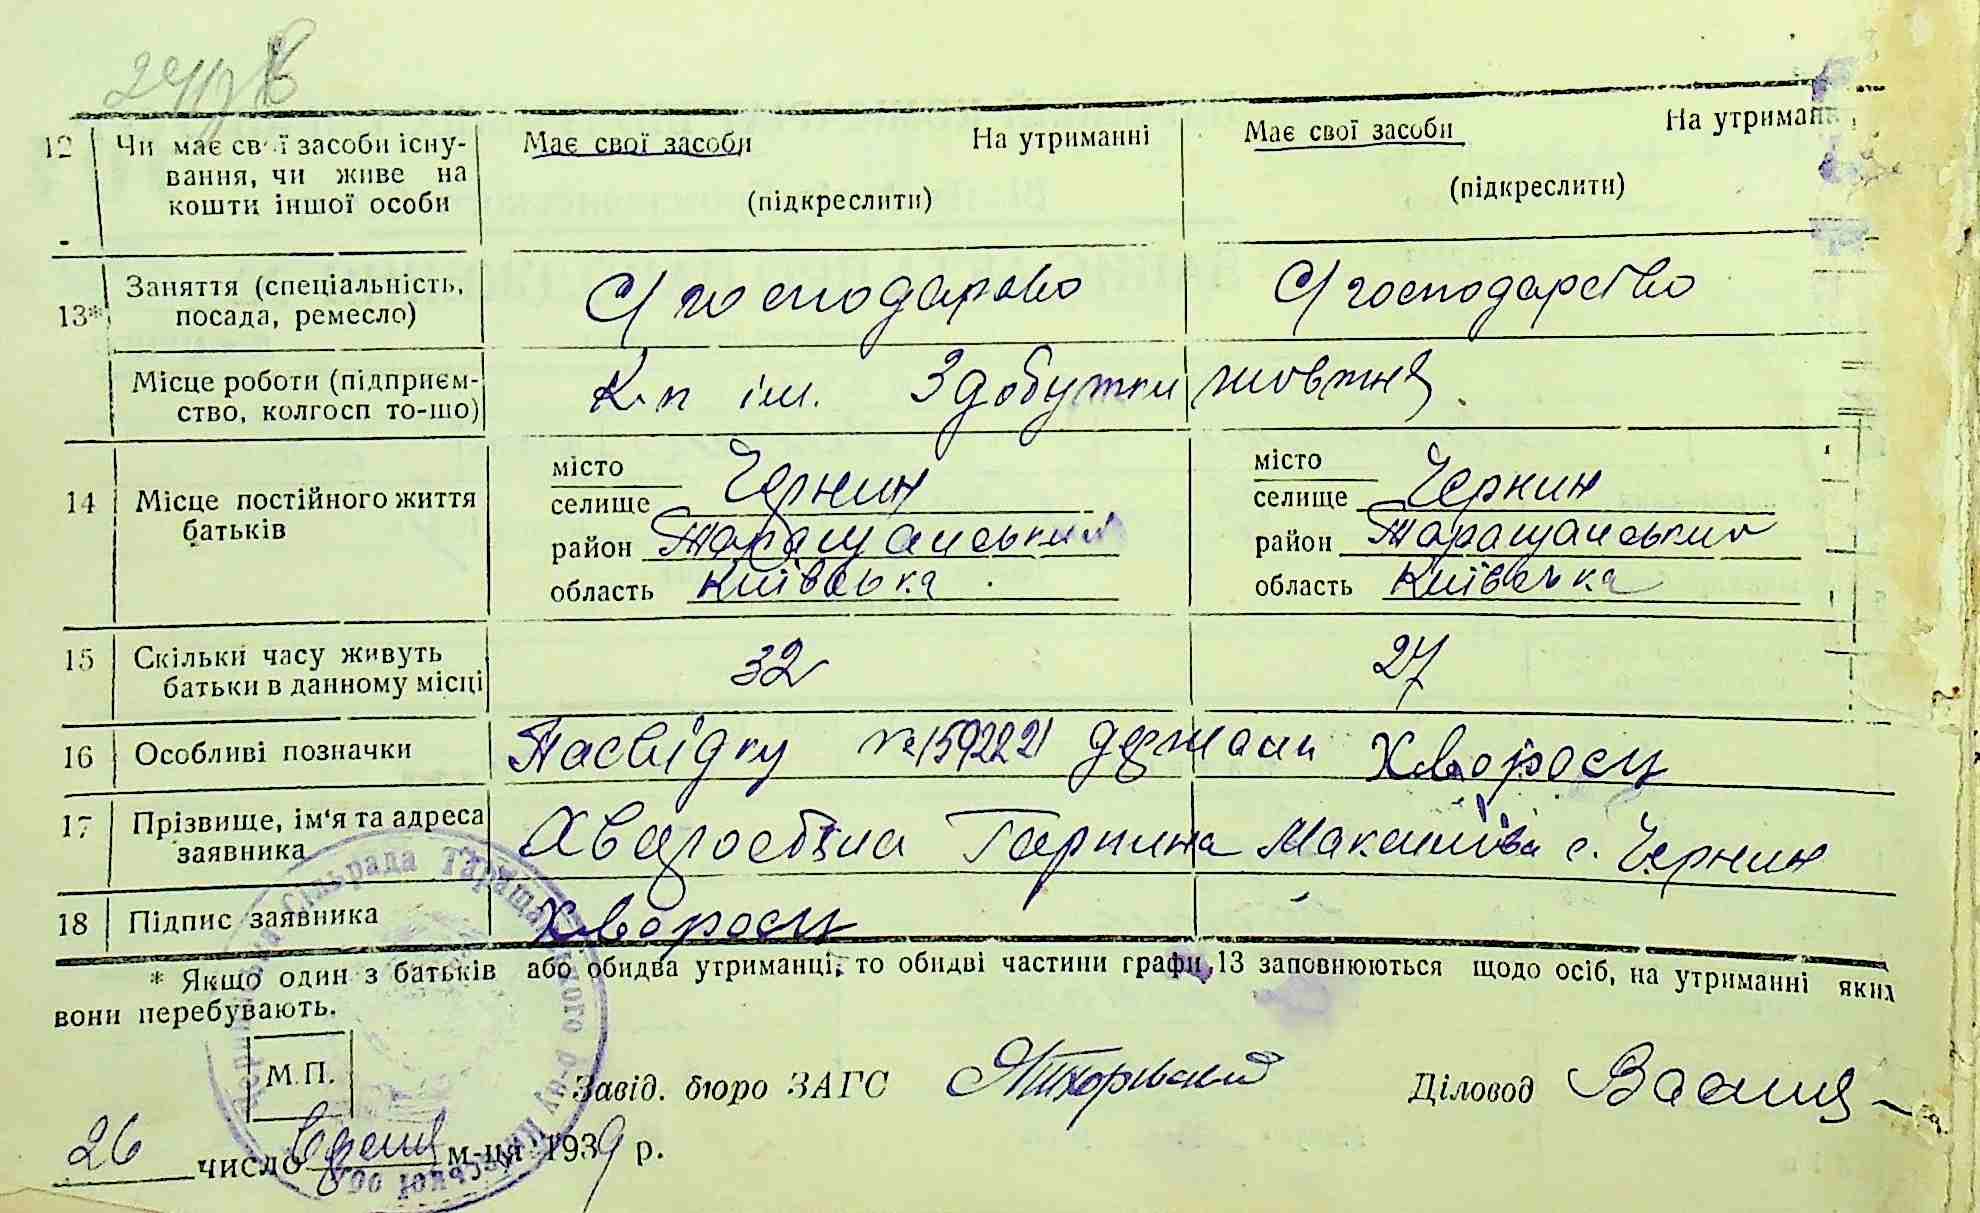 12 Чи має свої засоби існу- Має свої засоби На утриманні Має свої засоби На утриман
вання, чи живе на
кошти іншої особи (підкреслити) (підкреслити)
13* Заняття (спеціальність, С/господарво С/господарство
посада, ремесло)
Місце роботи (підприєм- К-п ім. Здобутки жовтня
ство, колгосп то-що)
14 Місце постійного життя місто Чернин місто Чернин
батьків селище селище
район Таращанський район Таращанський
область Київська область Київська
15 Скільки часу живуть 32 27
батьки в данному місці
16 Особливі позначки Посвідку № 159222 держали Хворост
17 Прізвище, ім'я та адреса Горпина Максимівна с. Чернин
заявника
18 Підпис заявника Хворост
* Якщо один з батьків або обидва утриманці, то обидві частини графи 13 заповнюються щодо осіб, на утриманні яких
вони перебувають.
М.П.
Завід. бюро ЗАГС Діловод
26 число м-ця 1939 р.
Сільрада Таращанського р-ну Київської об